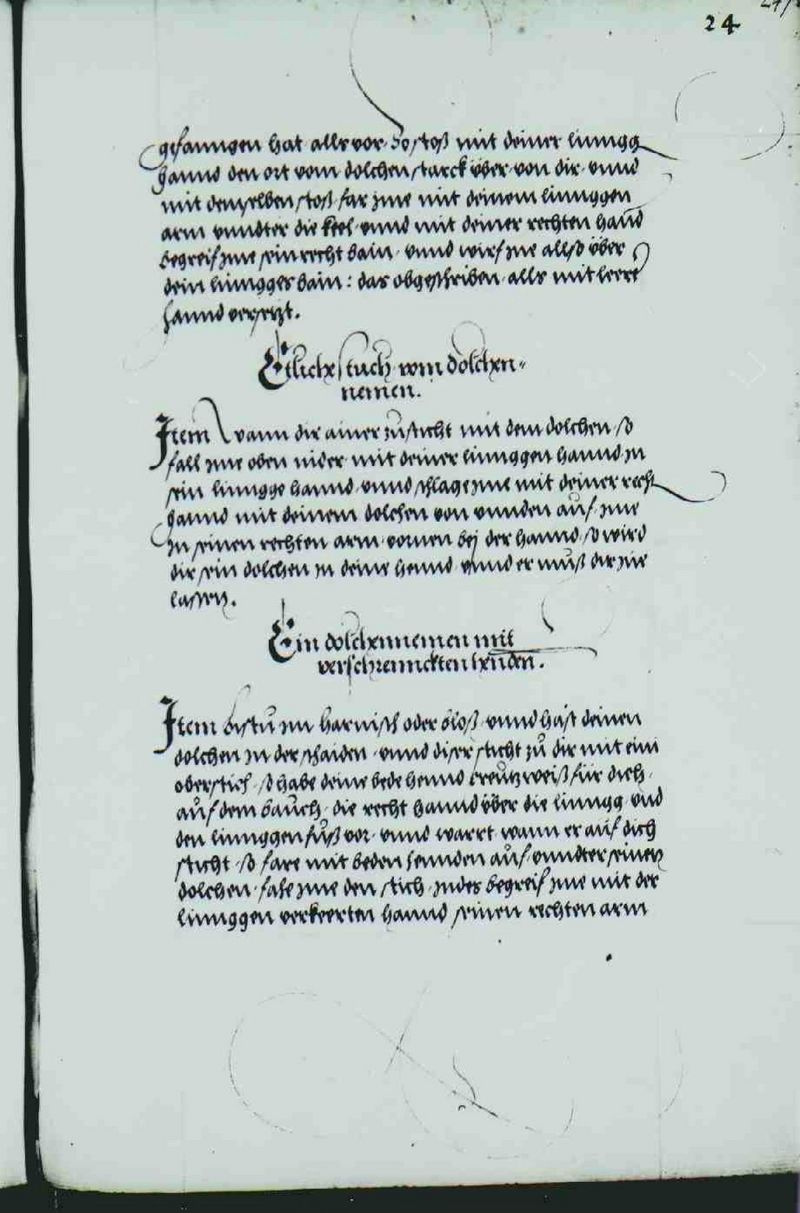 24
gefanngen hat alls vor · So stoß mit deiner linngg
hannd den ort vom dolchen starck über · von dir · vnnd
mit demselben stoß · far jme mit deinem linnggen
arm vnndter die keel · vnnd mit deiner rechten hand
begreif jme sein recht bain · vnnd wirf jne allso über
dein linngges bain : das obgeschriben · alls mit leerer
hannd versetzt.
Etliche stuckh vom dolchen-
nemen.
Item wann dir ainer zusticht mit dem dolchen · so
fall jme oben nider · mit deiner linnggen hannd · in
sein linngge hannd · vnnd schlage jme mit deiner recht
hannd mit deinem dolchen von vnnden auf · jme
in seinen rechten arm · vornen bej der hannd · so wird
dir sein dolchen in deine hennd · vnnd er muß dir jne
lassen.
Ein dolchennemen mit
verschrennckten henden.
Item bistu im harnisch oder bloß · vnnd hast deinen
dolchen in der schaiden · vnnd diser sticht zu dir mit eim
oberstich · so habe deine bede hennd creutzweiß für dich ·
auf dem bauch · die recht hannd über die linngg · vnd
den linnggen fuß vor · vnnd wart wann er auf dich
sticht · so fare mit beden hennden auf · vnndter seinen
dolchen · fahe jme den stich · jndes begreif jme mit der
linnggen verkeerten hannd seinen rechten arm